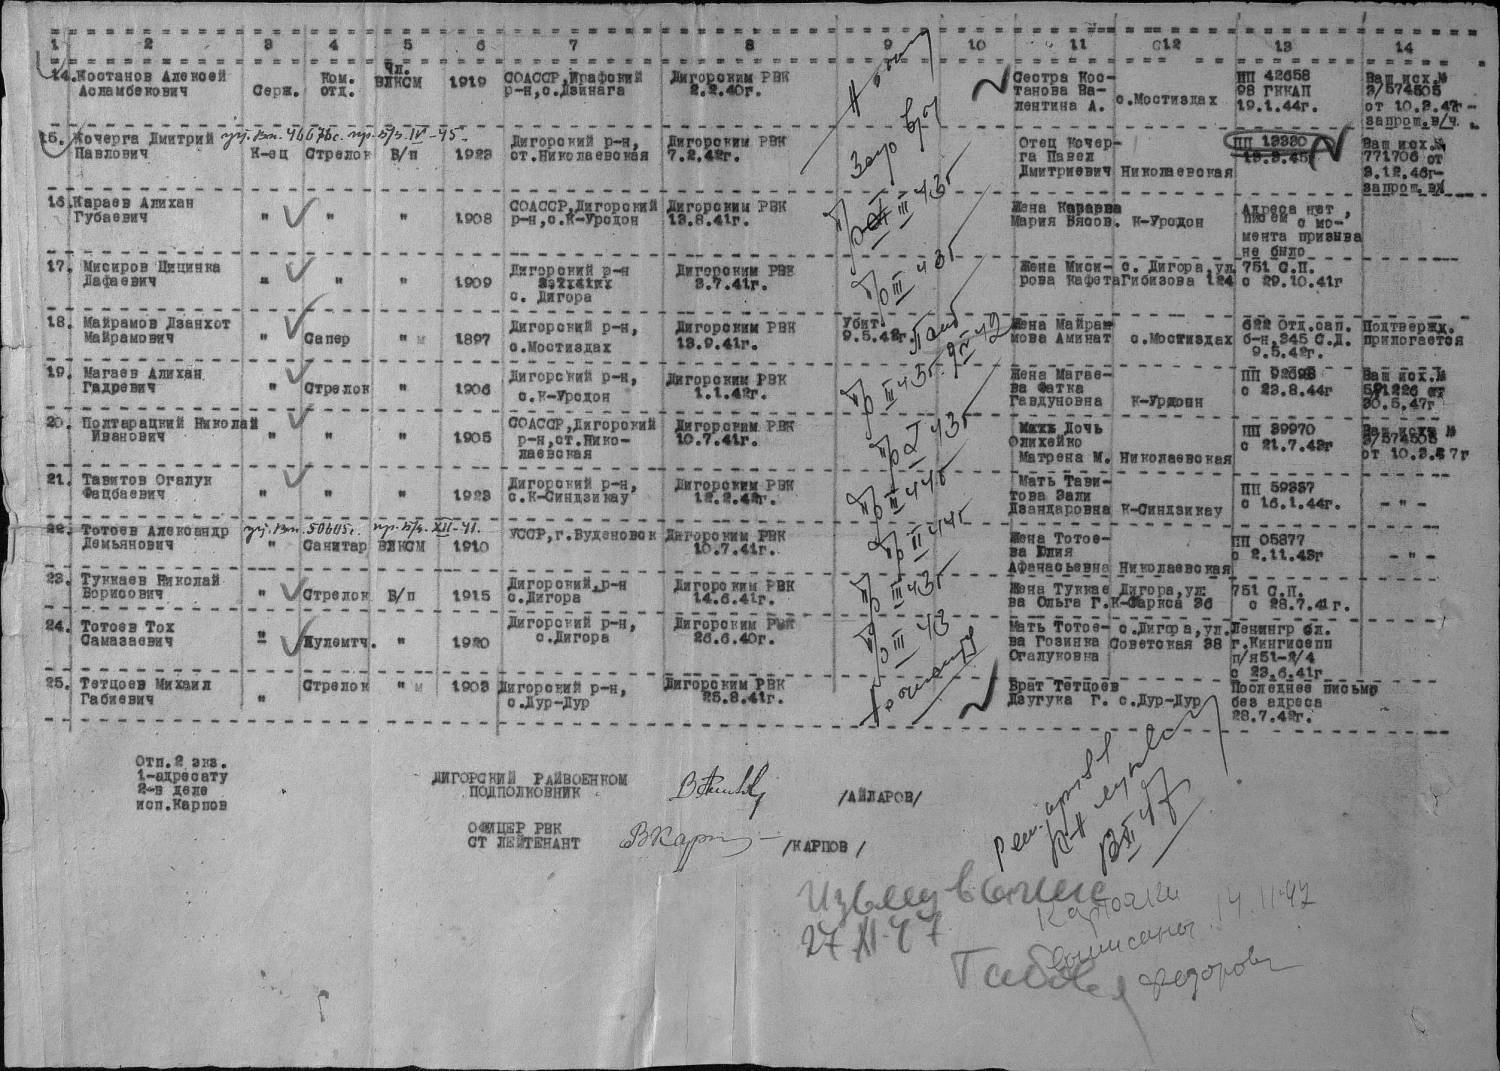 1 2 3 4 5 6 7 8 9 10 11 12 13 14
14. Костанов Алексей Асламбекович Серж. Ком. отд. Чл. ВЛКСМ 1919 СОАССР, Ирафский р-н, с. Дзинага Дигорским РВК 2.2.40г. Сестра Костанова Валентина А. с. Мостиздах ПП 42658 98 ГККАП 19.1.44г. Ваш исх.№ 3/574505 от 10.3.47г- запрош. в/ч
15. Кочерга Дмитрий Павлович К-ец Стрелок Б/п 1923 Дигорский р-н, ст. Николаевская Дигорским РВК 7.2.42г. Отец Кочерга Павел Дмитриевич Николаевская ПП 13330 Ваш исх.№ 771706 от 3.12.46г- запрош.
16. Караев Алихан Губаевич " " " 1908 СОАССР, Дигорский р-н, с. К-Урсдон Дигорским РВК 13.8.41г. п/о III 43г Жена Мария К-Урсдон Адреса нет, писем с момента призыва не было
17. Мисиров Цицинка Дафаевич " " " 1909 Дигорский р-н с. Дигора Дигорским РВК 3.7.41г. п/о III 43г Жена Мисирова Кафета с. Дигора, ул. Гибизова 124 751 С.П. с 29.10.41г
18. Майрамов Дзанхот Майрамович " Сапер " м 1897 Дигорский р-н, с. Мостиздах Дигорским РВК 13.9.41г. Убит 9.5.42г. Жена Майрамова Аминат с. Мостиздах 622 Отд.сап. б-н, 345 С.Д. 9.5.42г. Подтвержд. прилогается
19. Магаев Алихан Гадревич " Стрелок " 1906 Дигорский р-н, с. К-Урсдон Дигорским РВК 1.1.42г. п/о III 43г. Жена Магаева Фатка Гавдуновна К-Урсдон ПП с 23.8.44г Ваш исх.№ 30.5.47г
20. Полтарацкий Николай Иванович " " " 1905 СОАССР, Дигорский р-н, ст. Николаевская Дигорским РВК 10.7.41г. п/о X 43г Дочь Олихейко Матрена М. Николаевская ПП 39970 с 21.7.43г Ваш исх № 3/574505 от 10.3.47г
21. Тавитов Огалук Фацбаевич " " " 1923 Дигорский р-н, с. К-Синдзикау Дигорским РВК 12.2.42г. п/о III 44г Мать Тавитова Зали Дзандаровна К-Синдзикау ПП 59337 с 16.1.44г. - " -
22. Тотоев Александр Демьянович " Санитар ВЛКСМ 1910 УССР, г. Буденовск Дигорским РВК 10.7.41г. п/о II 44г Жена Тотоева Юлия Афанасьевна Николаевская ПП 05877 с 2.11.43г - " -
23. Туккаев Николай Борисович " Стрелок Б/п 1915 Дигорский р-н с. Дигора Дигорским РВК 14.6.41г. п/о III 43г Жена Туккаева Ольга Г. Дигора, ул. К-Маркса 36 751 С.П. с 28.7.41г.
24. Тотоев Тох Самазаевич " Пулемтч. " 1920 Дигорский р-н, с. Дигора Дигорским РВК 26.6.40г. п/о III 43 Мать Тотоева Гозинка Огалуковна с. Дигора, ул. Советская 38 Ленингр бл. г. Кингисепп п/я51-2/4 с 23.6.41г
25. Тетцоев Михаил Габиевич " Стрелок " м 1903 Дигорский р-н, с. Дур-Дур Дигорским РВК 25.8.41г. Брат Тетцоев Дзугука Г. с. Дур-Дур Последнее письмо без адреса 28.7.42г.
Отп.2 экз.
1-адресату
2-в деле
исп.Карпов
ДИГОРСКИЙ РАЙВОЕНКОМ
ПОДПОЛКОВНИК /АЙЛАРОВ/
ОФИЦЕР РВК
СТ ЛЕЙТЕНАНТ ВКарп /КАРПОВ/
27 XI-47
Карточки
выписаны 14.11.47
Федорова